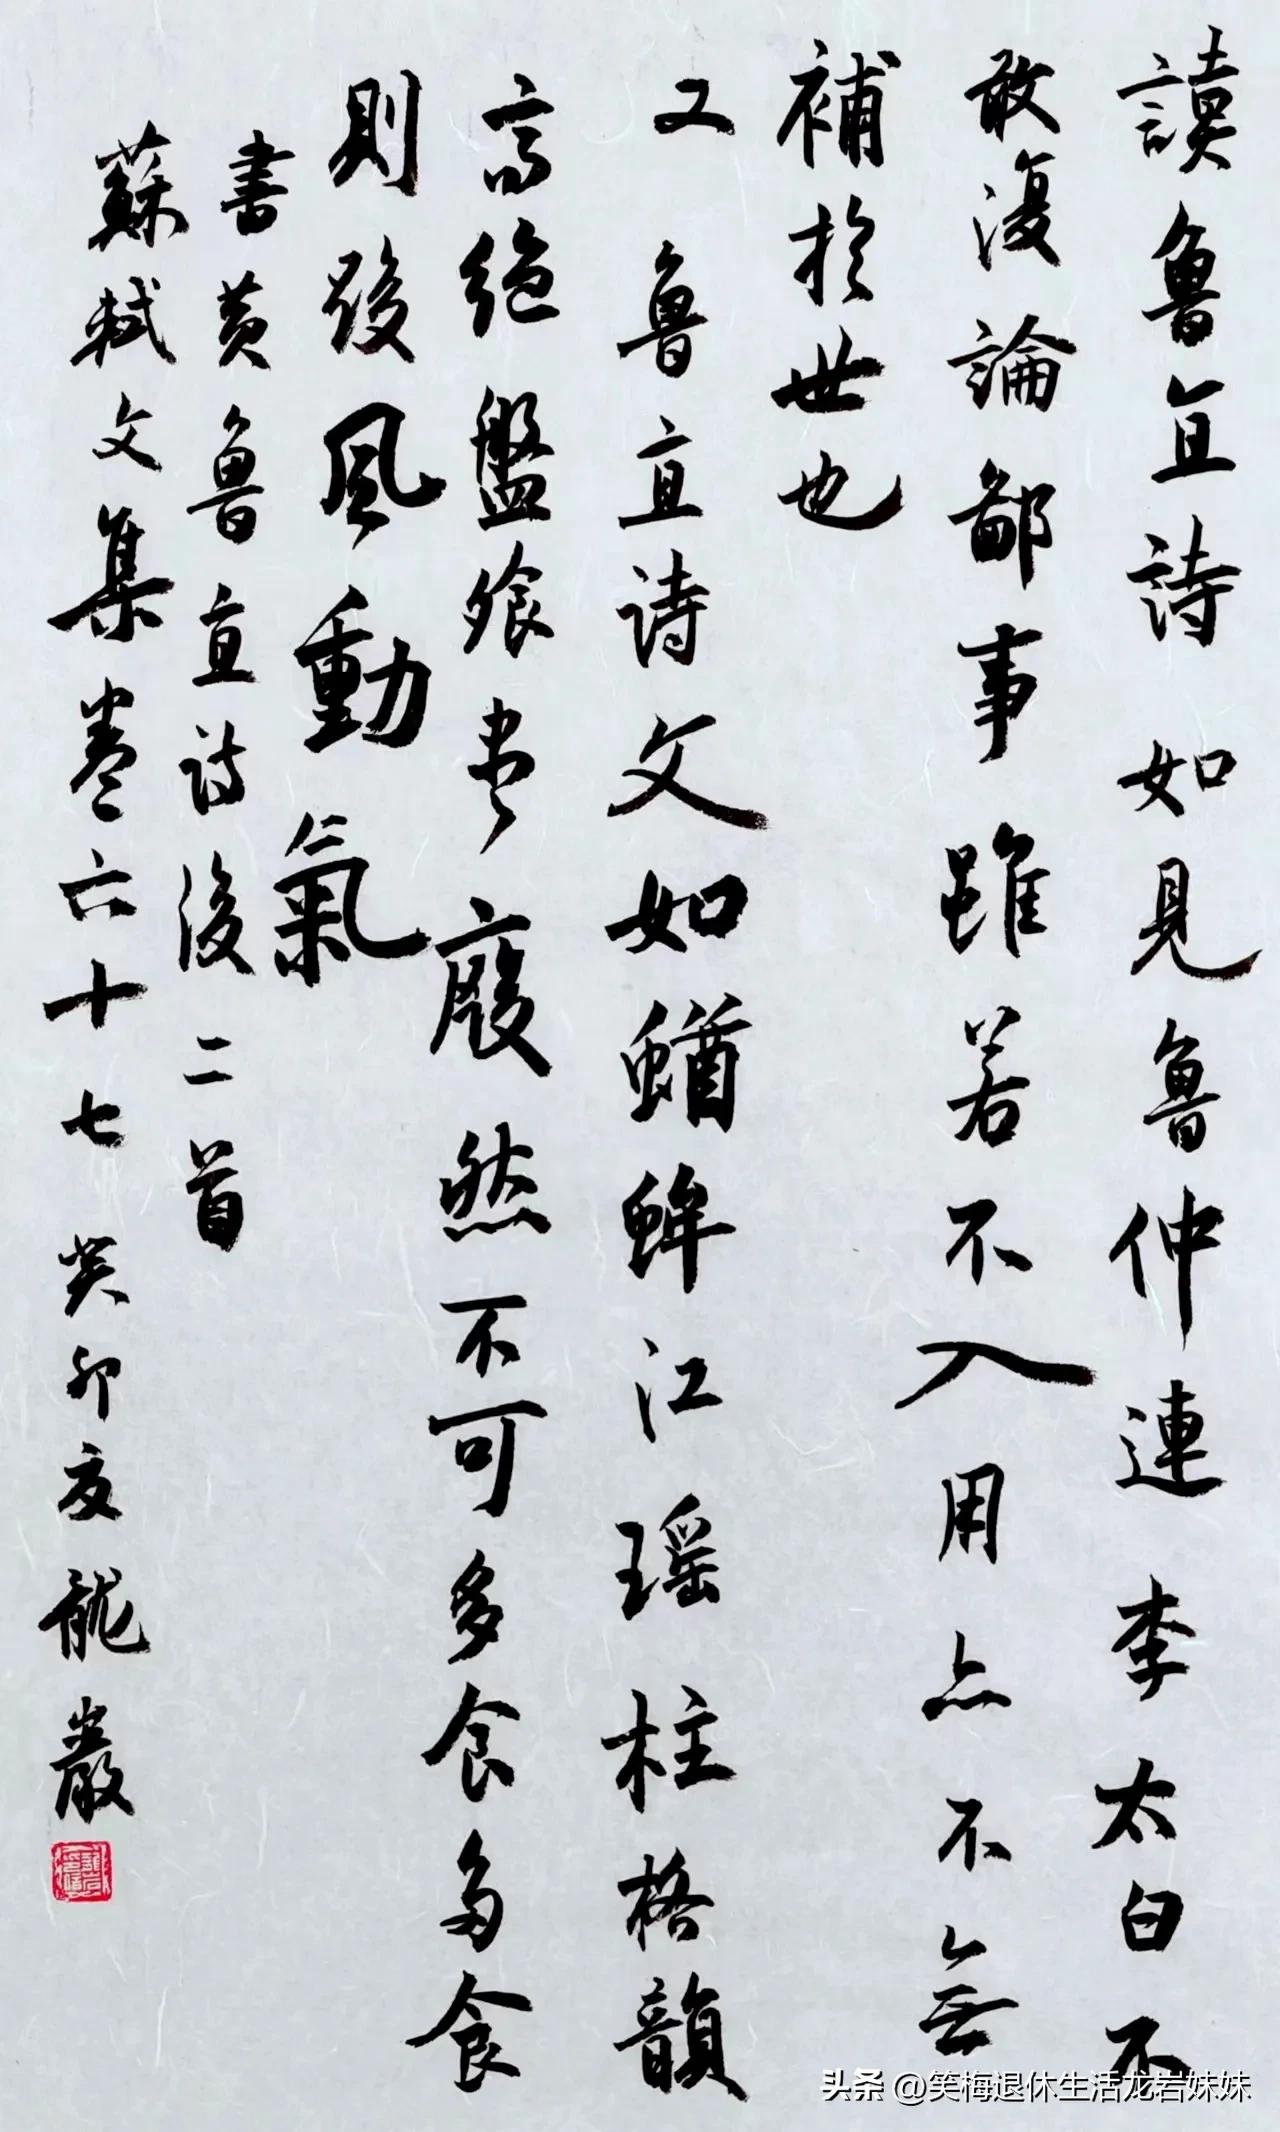 讀魯直詩如見魯仲連李太白不
敢復論鄙事雖若不入用亦不無
補於世也
又魯直诗文如蝤蛑江瑶柱格韻
高絶盤飧尽廢然不可多食多食
則發風動氣
書黄魯直诗後二首
蘇軾文集卷六十七 癸卯夏龍巖
头条 @笑梅退休生活龙岩妹妹